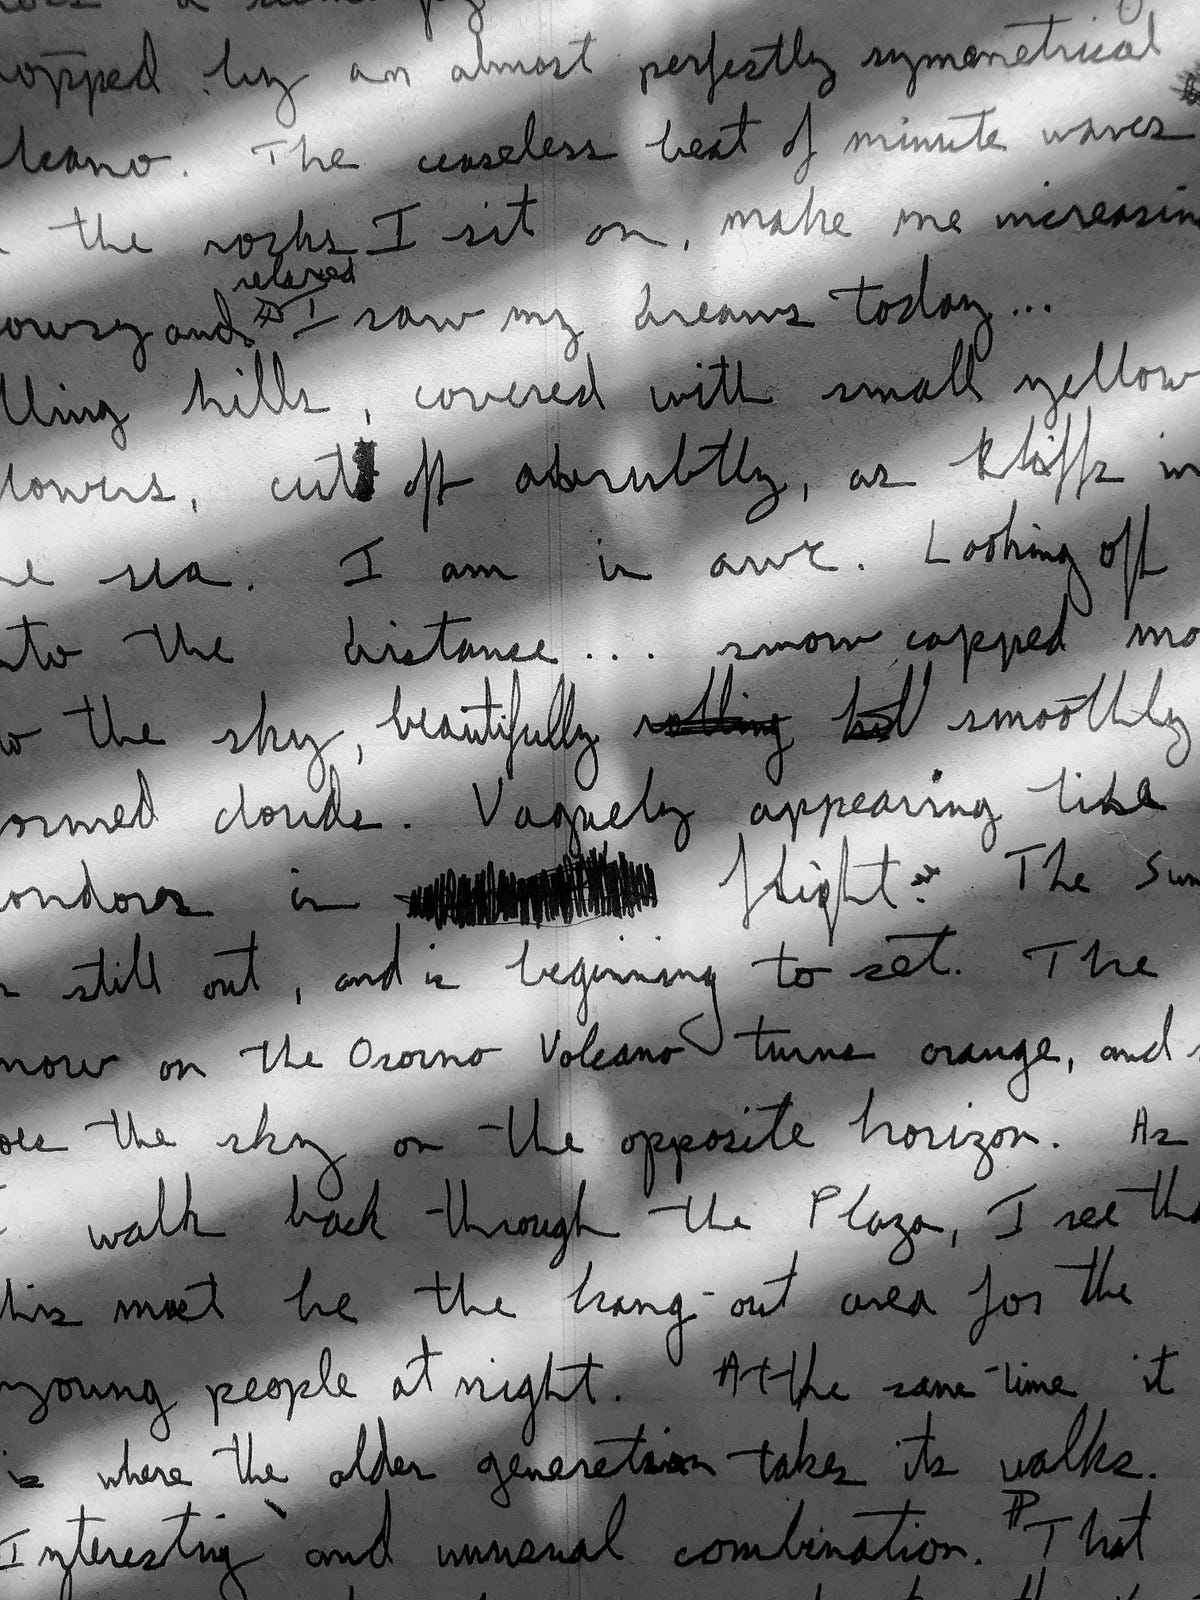 opped by an almost perfectly symmetrical
lcano. The ceaseless beat of minute waves
the rocks I sit on, make me increasin
relaxed
owsy and I saw my dreams today...
lling hills, covered with small yellow
lowers, cut off abrubtly, as kliffs in
e sea. I am in awe. Looking off
nto the distance.... snow capped mo
o the sky, beautifully rolling hill smoothly
ormed clouds. Vaguely appearing like
ondors in flight. The Sun
still out, and is beginning to set. The
now on the Osorno Volcano turns orange, and
oes the sky on the opposite horizon. As
I walk back through the Plaza, I see tha
this must be the hang-out area for the
young people at night. At the same time it
is where the older generation takes its walks.
Interesting and unusual combination. That